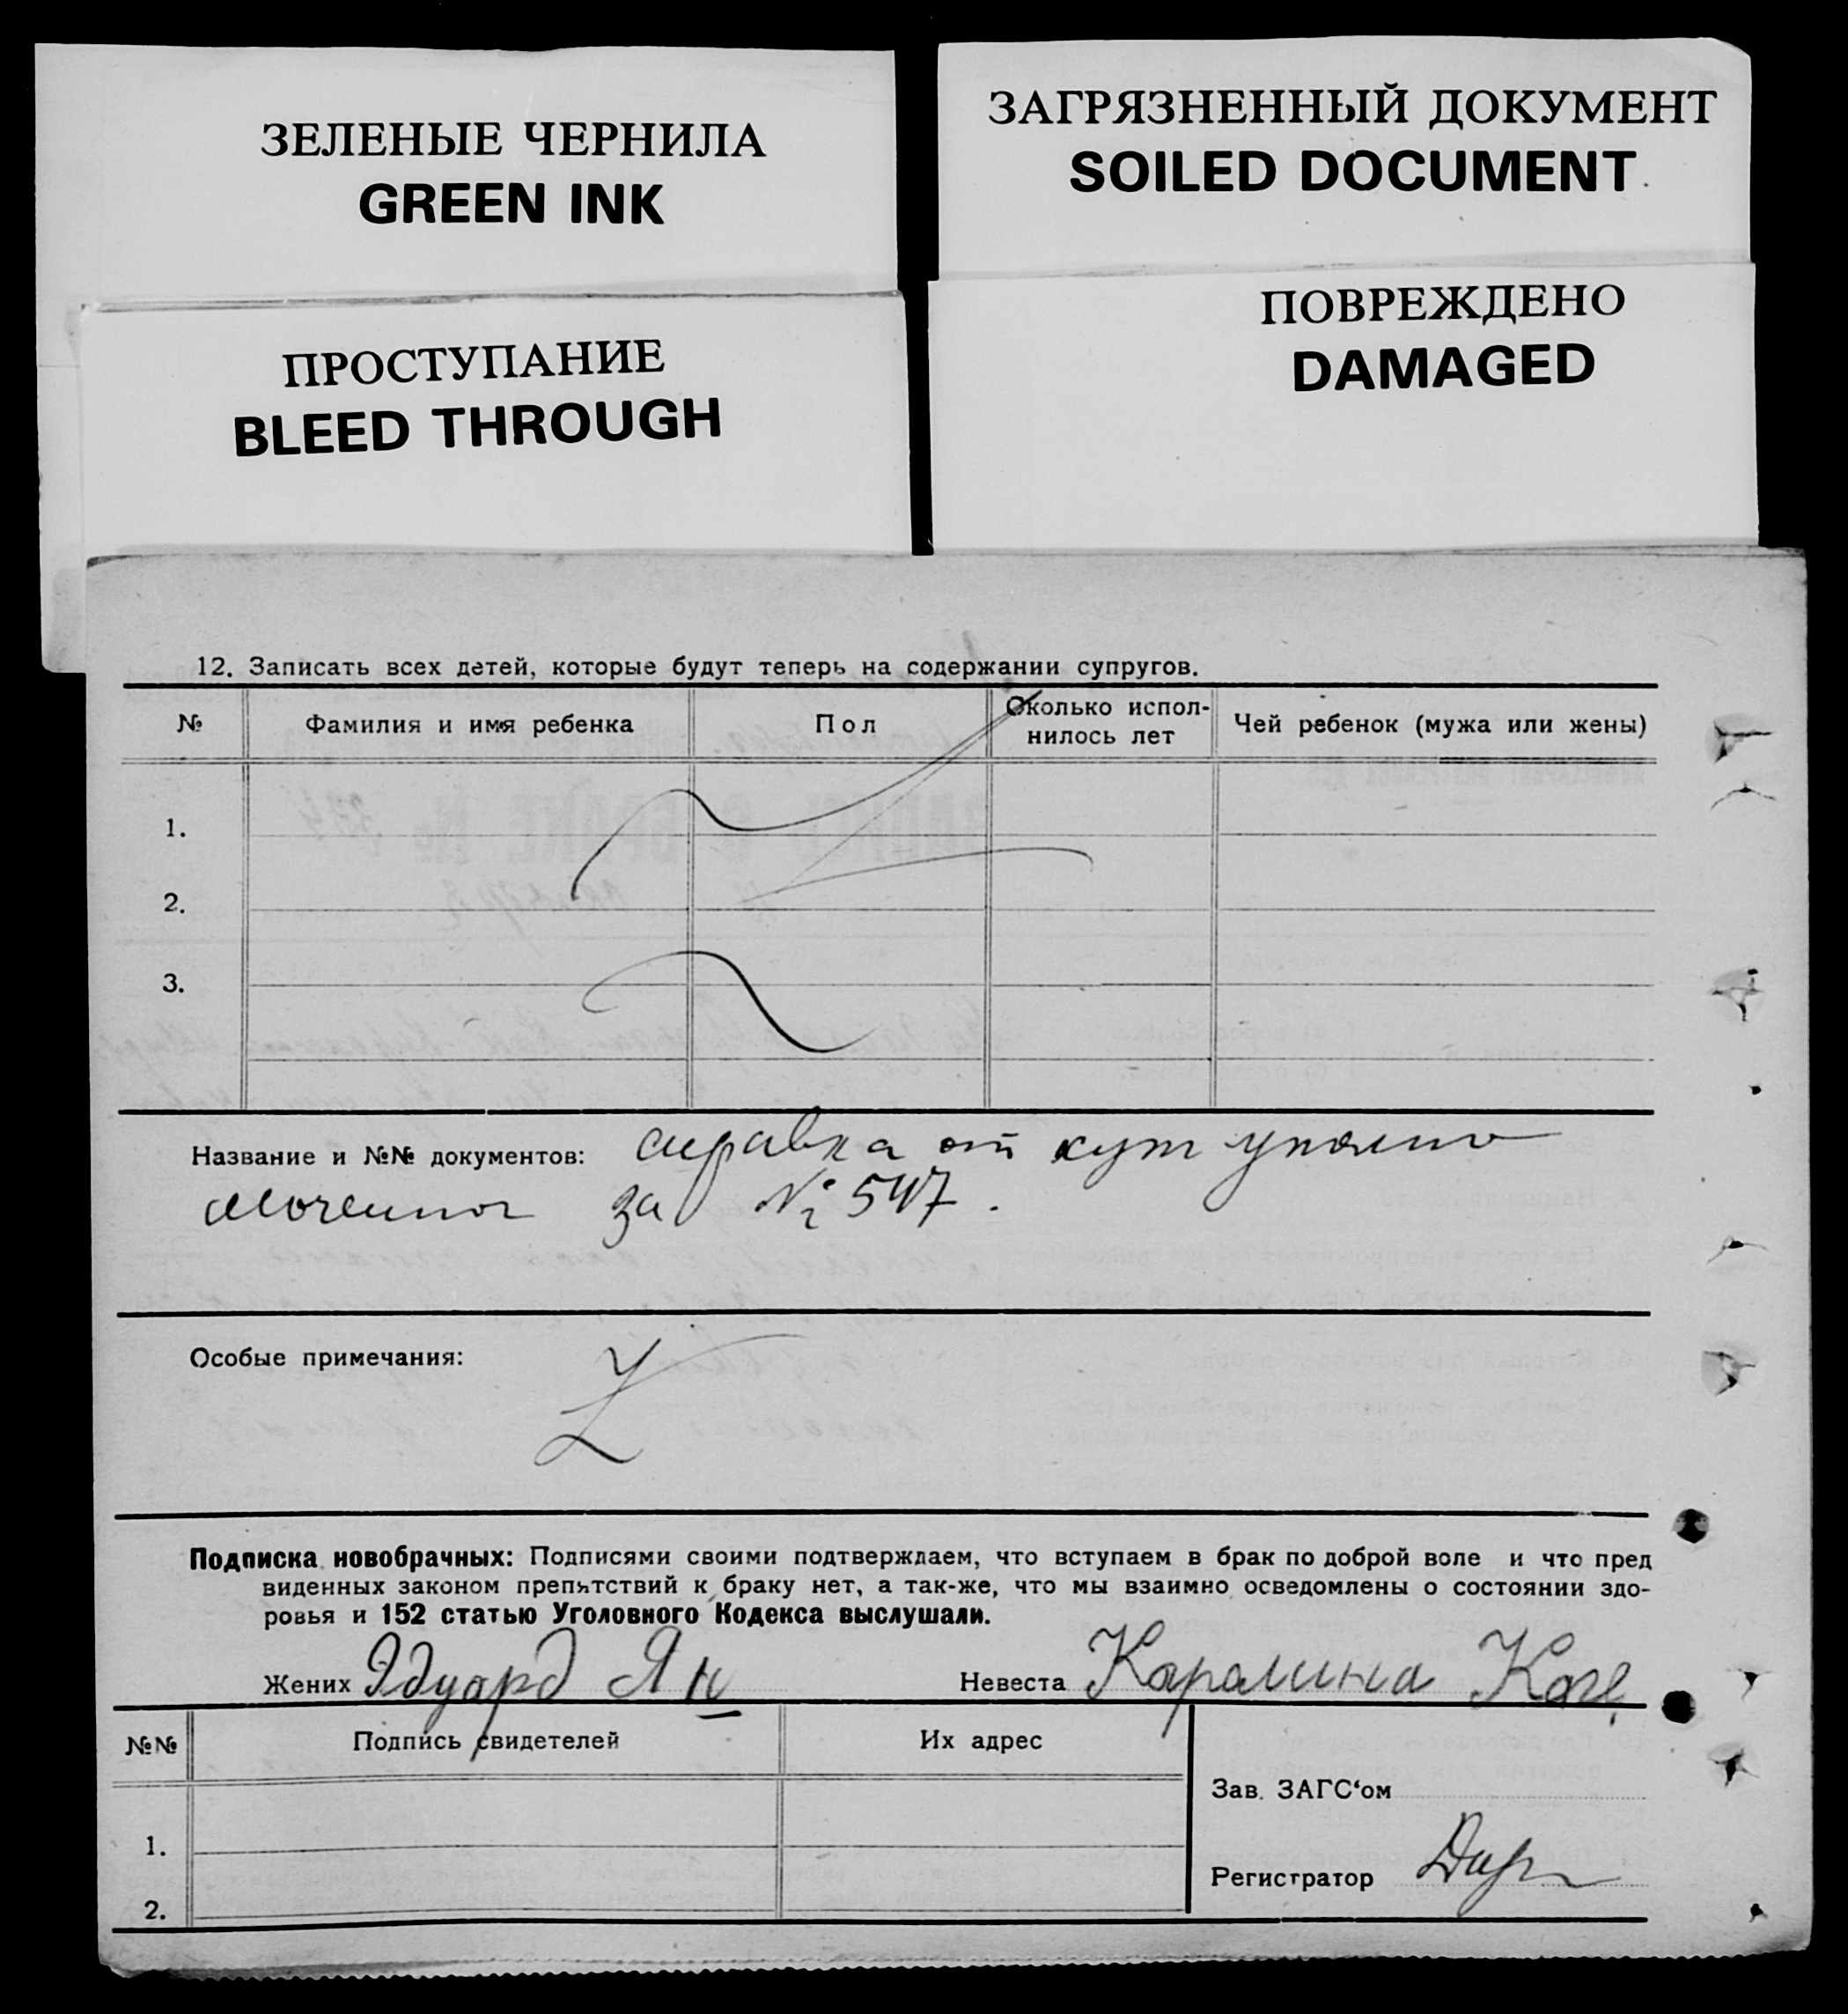 ЗЕЛЕНЫЕ ЧЕРНИЛА
GREEN INK
ЗАГРЯЗНЕННЫЙ ДОКУМЕНТ
SOILED DOCUMENT
ПРОСТУПАНИЕ
BLEED THROUGH
ПОВРЕЖДЕНО
DAMAGED
12. Записать всех детей, которые будут теперь на содержании супругов.
№ Фамилия и имя ребенка Пол Сколько испол-нилось лет Чей ребенок (мужа или жены)
1.
2.
3.
Название и №№ документов: справка от хут уполно
моченног за № 547.
Особые примечания:
Подписка новобрачных: Подписями своими подтверждаем, что вступаем в брак по доброй воле и что пред
виденных законом препятствий к браку нет, а так-же, что мы взаимно осведомлены о состоянии здо-
ровья и 152 статью Уголовного Кодекса выслушали.
Жених Эдуард Ян Невеста Каролина
№№ Подпись свидетелей Их адрес
Зав. ЗАГС‘ом
1.
Регистратор
2.